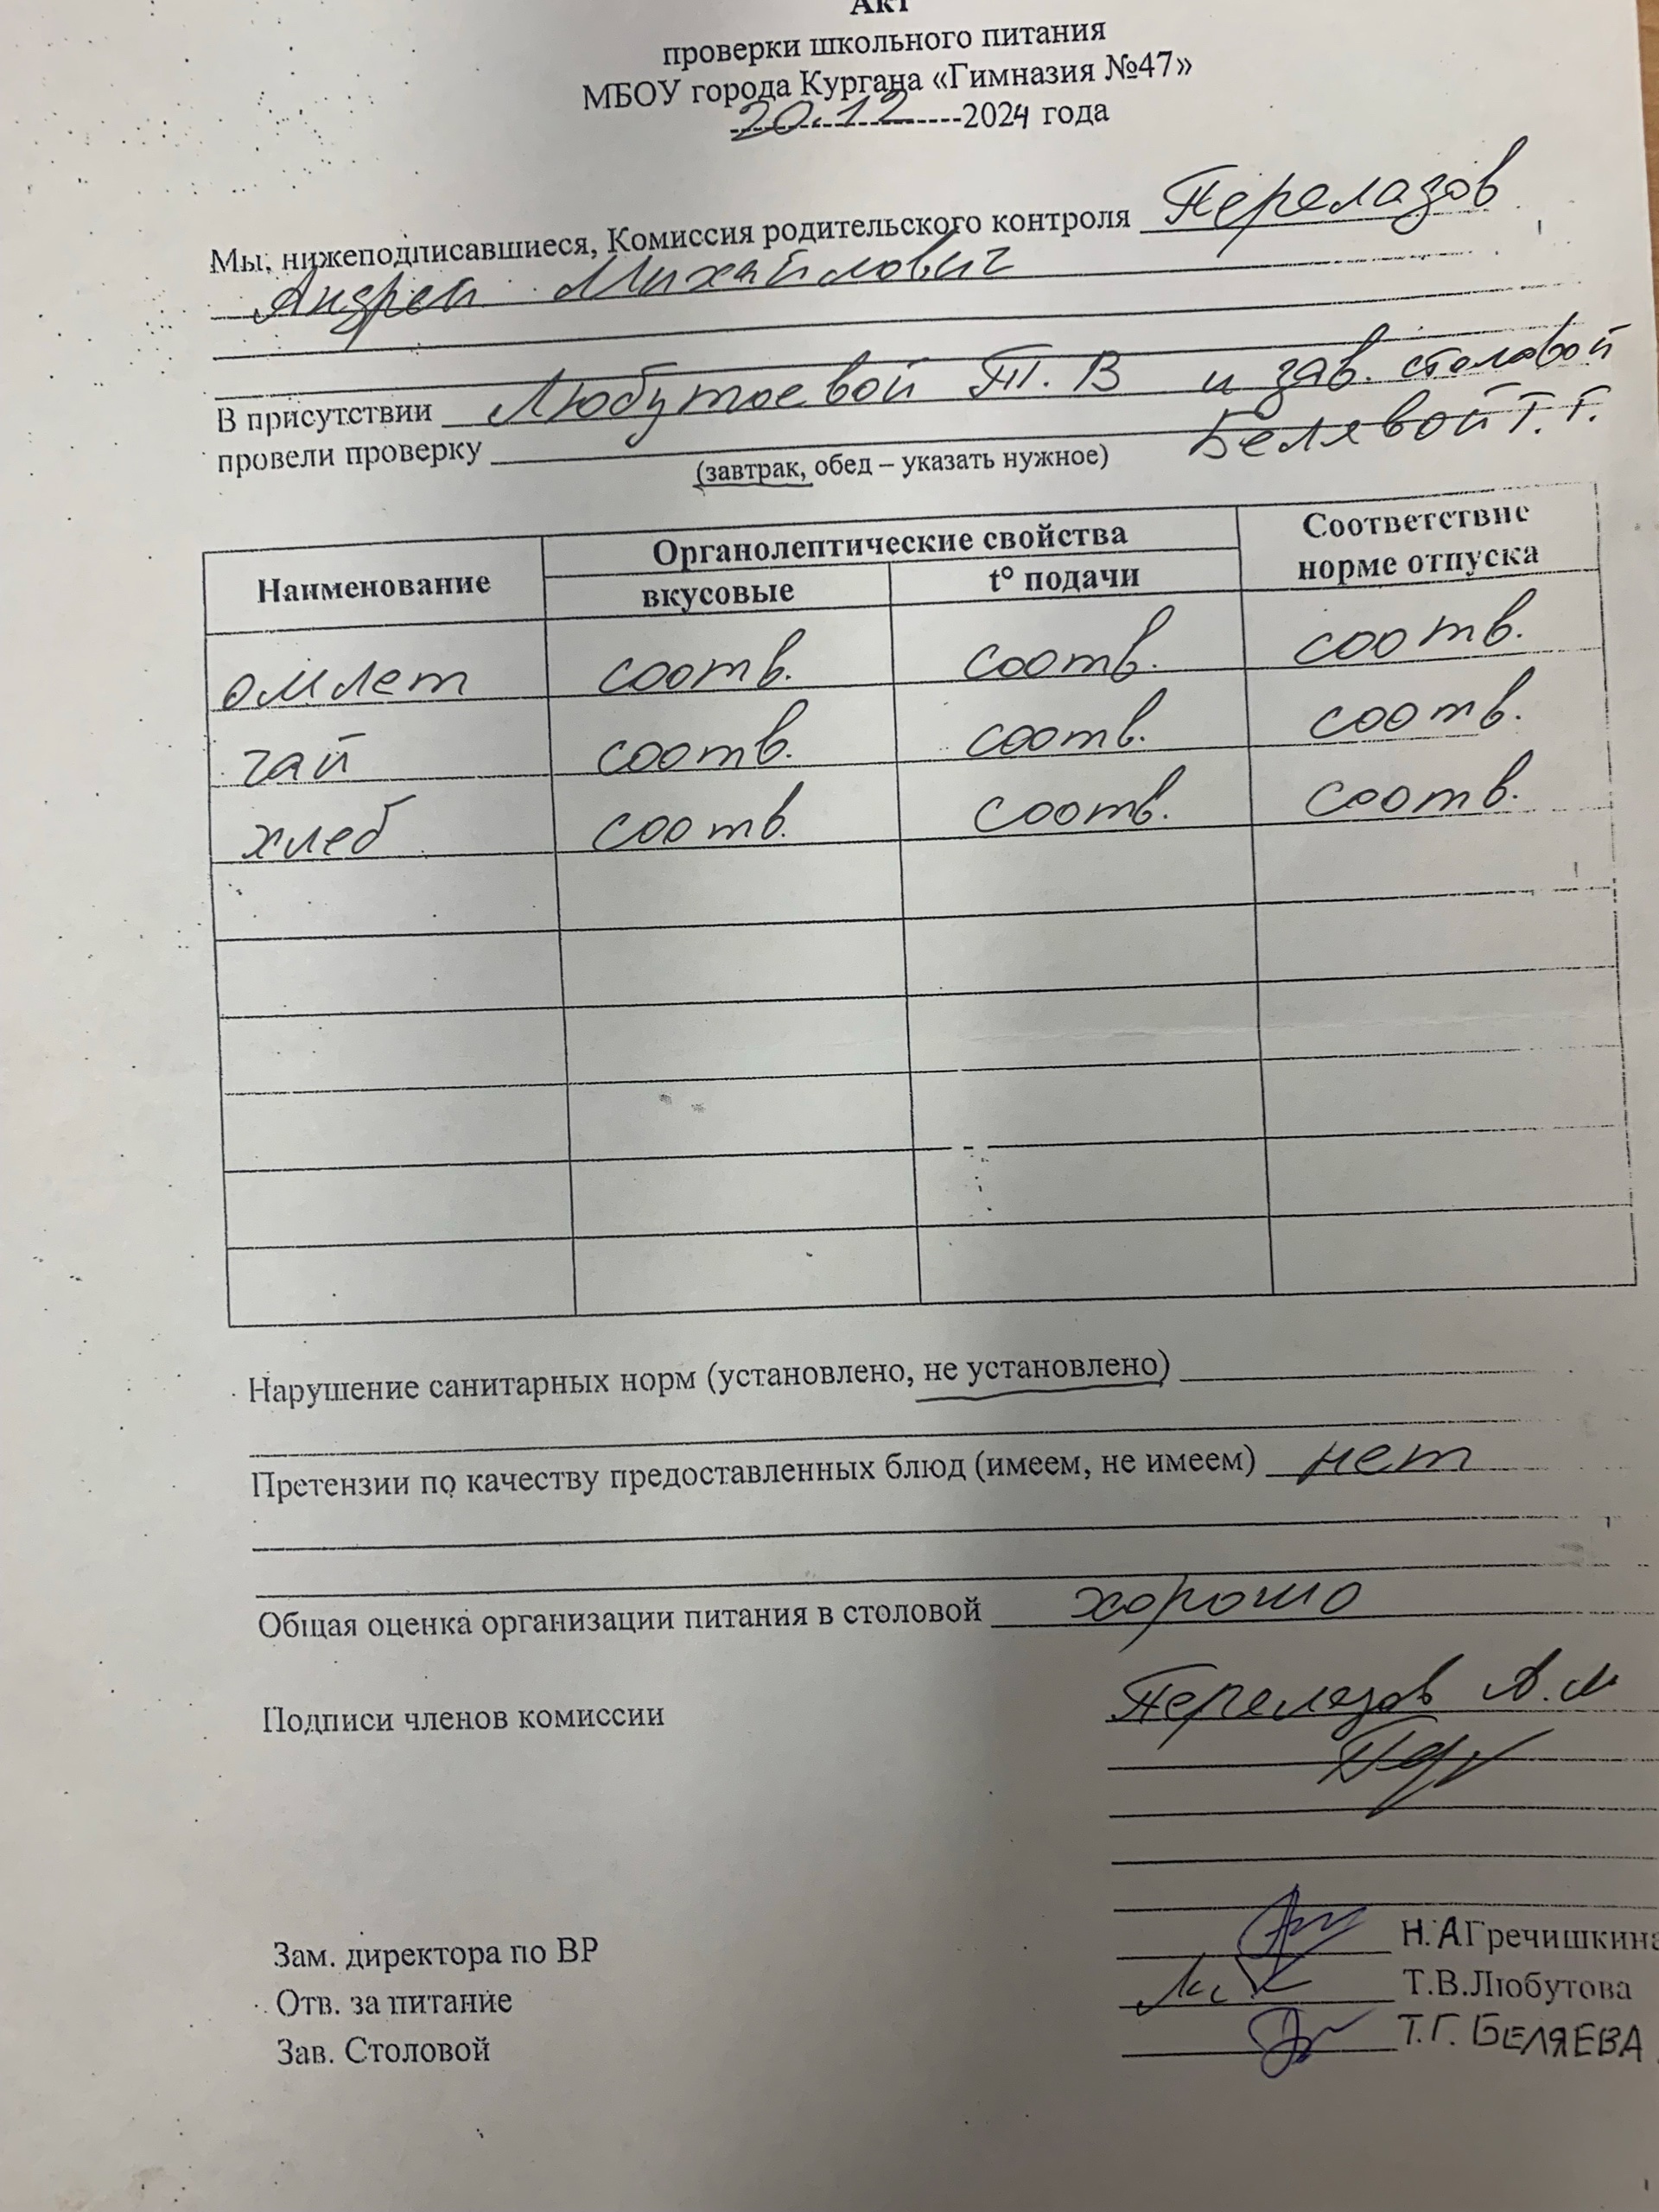 Акт
проверки школьного питания
МБОУ города Кургана «Гимназия №47»
20.12 2024 года
Мы, нижеподписавшиеся, Комиссия родительского контроля Перелазов
Андрей Михайлович
В присутствии Любутоевой Т. В и зав. столовой
Белявой Т. Г.
провели проверку
(завтрак, обед – указать нужное)
Наименование Органолептические свойства Соответствие норме отпуска
вкусовые t° подачи
омлет соотв. соотв. соотв.
чай соотв. соотв. соотв.
хлеб соотв. соотв. соотв.
Нарушение санитарных норм (установлено, не установлено)
Претензии по качеству предоставленных блюд (имеем, не имеем) нет
Общая оценка организации питания в столовой хорошо
Подписи членов комиссии Перелазов А.М
Зам. директора по ВР Н.А Гречишкина
Отв. за питание Т.В.Любутова
Зав. Столовой Т.Г. БЕЛЯЕВА